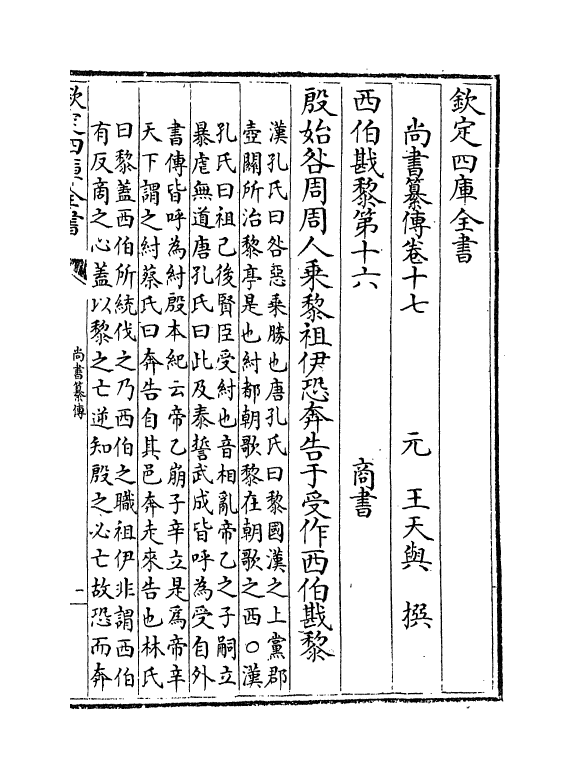 欽定四庫全書
尚書纂傳卷十七
元　王天與　撰
西伯戡黎第十六
商書
殷始咎周周人乘黎祖伊恐奔告于受作西伯戡黎
漢孔氏曰咎惡乘勝也唐孔氏曰黎國漢之上黨郡
壺關所治黎亭是也紂都朝歌黎在朝歌之西○漢
孔氏曰祖己後賢臣受紂也音相亂帝乙之子嗣立
暴虐無道唐孔氏曰此及泰誓武成皆呼為受自外
書傳皆呼為紂殷本紀云帝乙崩子辛立是為帝辛
天下謂之紂蔡氏曰奔告自其邑奔走來告也林氏
曰黎蓋西伯所統伐之乃西伯之職祖伊非謂西伯
有反商之心蓋以黎之亡逆知殷之必亡故恐而奔
欽定四庫全書
尚書纂傳
一